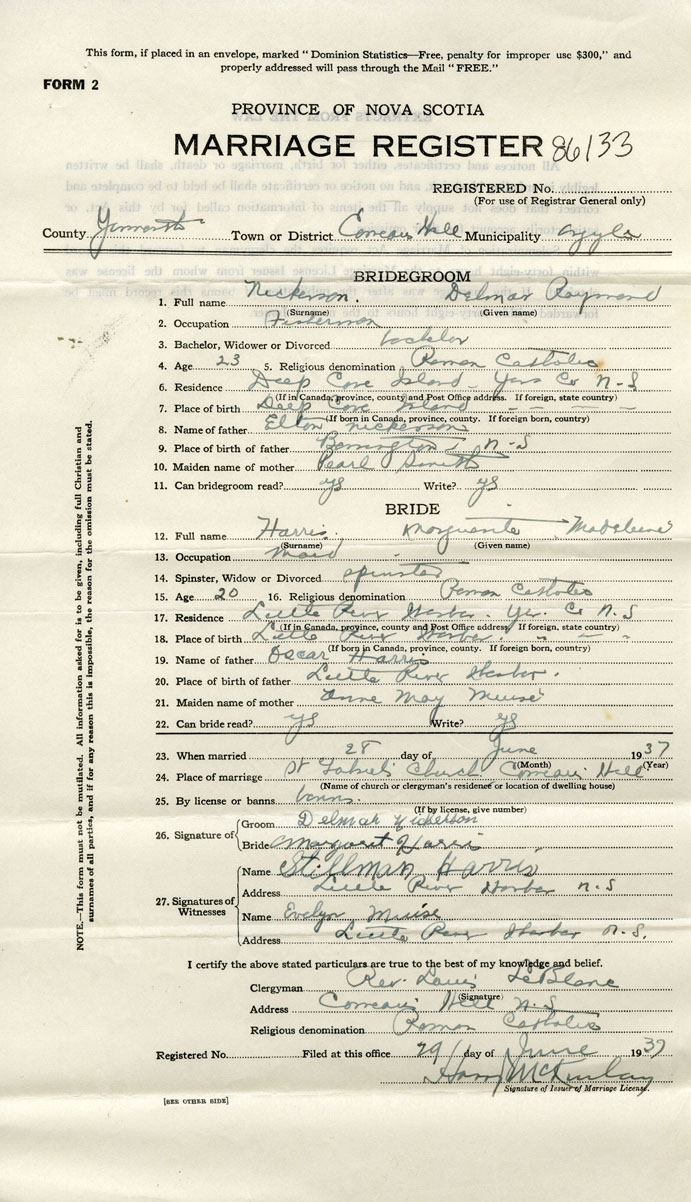 This form, if placed in an envelope, marked "Dominion Statistics—Free, penalty for improper use $300," and
properly addressed will pass through the Mail "FREE."
FORM 2
PROVINCE OF NOVA SCOTIA
MARRIAGE REGISTER 86133
REGISTERED No.
(For use of Registrar General only)
County Yarmouth Town or District Comeau's Hill Municipality Argyle
BRIDEGROOM
1. Full name Nickerson. Delmar Raymond
(Surname) (Given name)
2. Occupation Fisherman
3. Bachelor, Widower or Divorced bachelor
4. Age 23 5. Religious denomination Roman Catholic
6. Residence Deep Cove Island - Yar Co N-S
(If in Canada, province, county and Post Office address. If foreign, state country)
7. Place of birth Deep Cove Island
(If born in Canada, province, county. If foreign born, country)
8. Name of father Elton Nickerson
9. Place of birth of father Barrington, N-S
10. Maiden name of mother Pearl Smith
11. Can bridegroom read? yes Write? yes
BRIDE
12. Full name Harris. Marguerite Madeleine
(Surname) (Given name)
13. Occupation maid
14. Spinster, Widow or Divorced spinster
15. Age 20 16. Religious denomination Roman Catholic
17. Residence Little River Harbor. Yar. Co N.S
(If in Canada, province, county and Post Office address. If foreign, state country)
18. Place of birth Little River Harbor. " — "
(If born in Canada, province, county. If foreign born, country)
19. Name of father Oscar Harris
20. Place of birth of father Little River Harbor.
21. Maiden name of mother Anne May Muise
22. Can bride read? yes Write? yes
23. When married 28 day of June 1937
(Month) (Year)
24. Place of marriage St Gabriel's Church Comeau's Hill
(Name of church or clergyman's residence or location of dwelling house)
25. By license or banns banns.
(If by license, give number)
26. Signature of
Groom Delmar Nickerson
Bride Margaret Harris
27. Signatures of Witnesses
Name Stillman Harris
Address Little River Harbor N.S
Name Evelyn Muise
Address Little River Harbor N.S.
I certify the above stated particulars are true to the best of my knowledge and belief.
Clergyman Rev. Louis LeBlanc
(Signature)
Address Comeau's Hill N.S
Religious denomination Roman Catholic
Registered No. Filed at this office 29 day of June 1937
Harry McKinlay
Signature of Issuer of Marriage License.
[SEE OTHER SIDE]
NOTE.—This form must not be mutilated. All information asked for is to be given, including full Christian and
surnames of all parties, and if for any reason this is impossible, the reason for the omission must be stated.